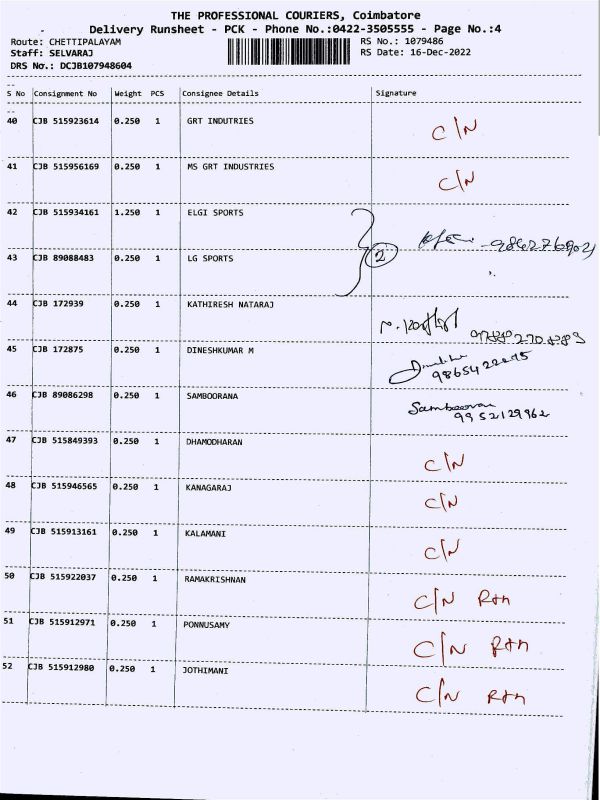 THE PROFESSIONAL COURIERS, Coimbatore
Delivery Runsheet - PCK - Phone No.:0422-3505555 - Page No.:4
Route: CHETTIPALAYAM RS No.: 1079486
Staff: SELVARAJ RS Date: 16-Dec-2022
DRS No.: DCJB107948604
S No Consignment No Weight PCS Consignee Details Signature
40 CJB 515923614 0.250 1 GRT INDUTRIES C/N
41 CJB 515956169 0.250 1 MS GRT INDUSTRIES C/N
42 CJB 515934161 1.250 1 ELGI SPORTS
2
43 CJB 89088483 0.250 1 LG SPORTS
44 CJB 172939 0.250 1 KATHIRESH NATARAJ
45 CJB 172875 0.250 1 DINESHKUMAR M
46 CJB 89086298 0.250 1 SAMBOORANA
9952129962
47 CJB 515849393 0.250 1 DHAMODHARAN C/N
48 CJB 515946565 0.250 1 KANAGARAJ C/N
49 CJB 515913161 0.250 1 KALAMANI C/N
50 CJB 515922037 0.250 1 RAMAKRISHNAN C/N Rtn
51 CJB 515912971 0.250 1 PONNUSAMY C/N Rtn
52 CJB 515912980 0.250 1 JOTHIMANI C/N Rtn